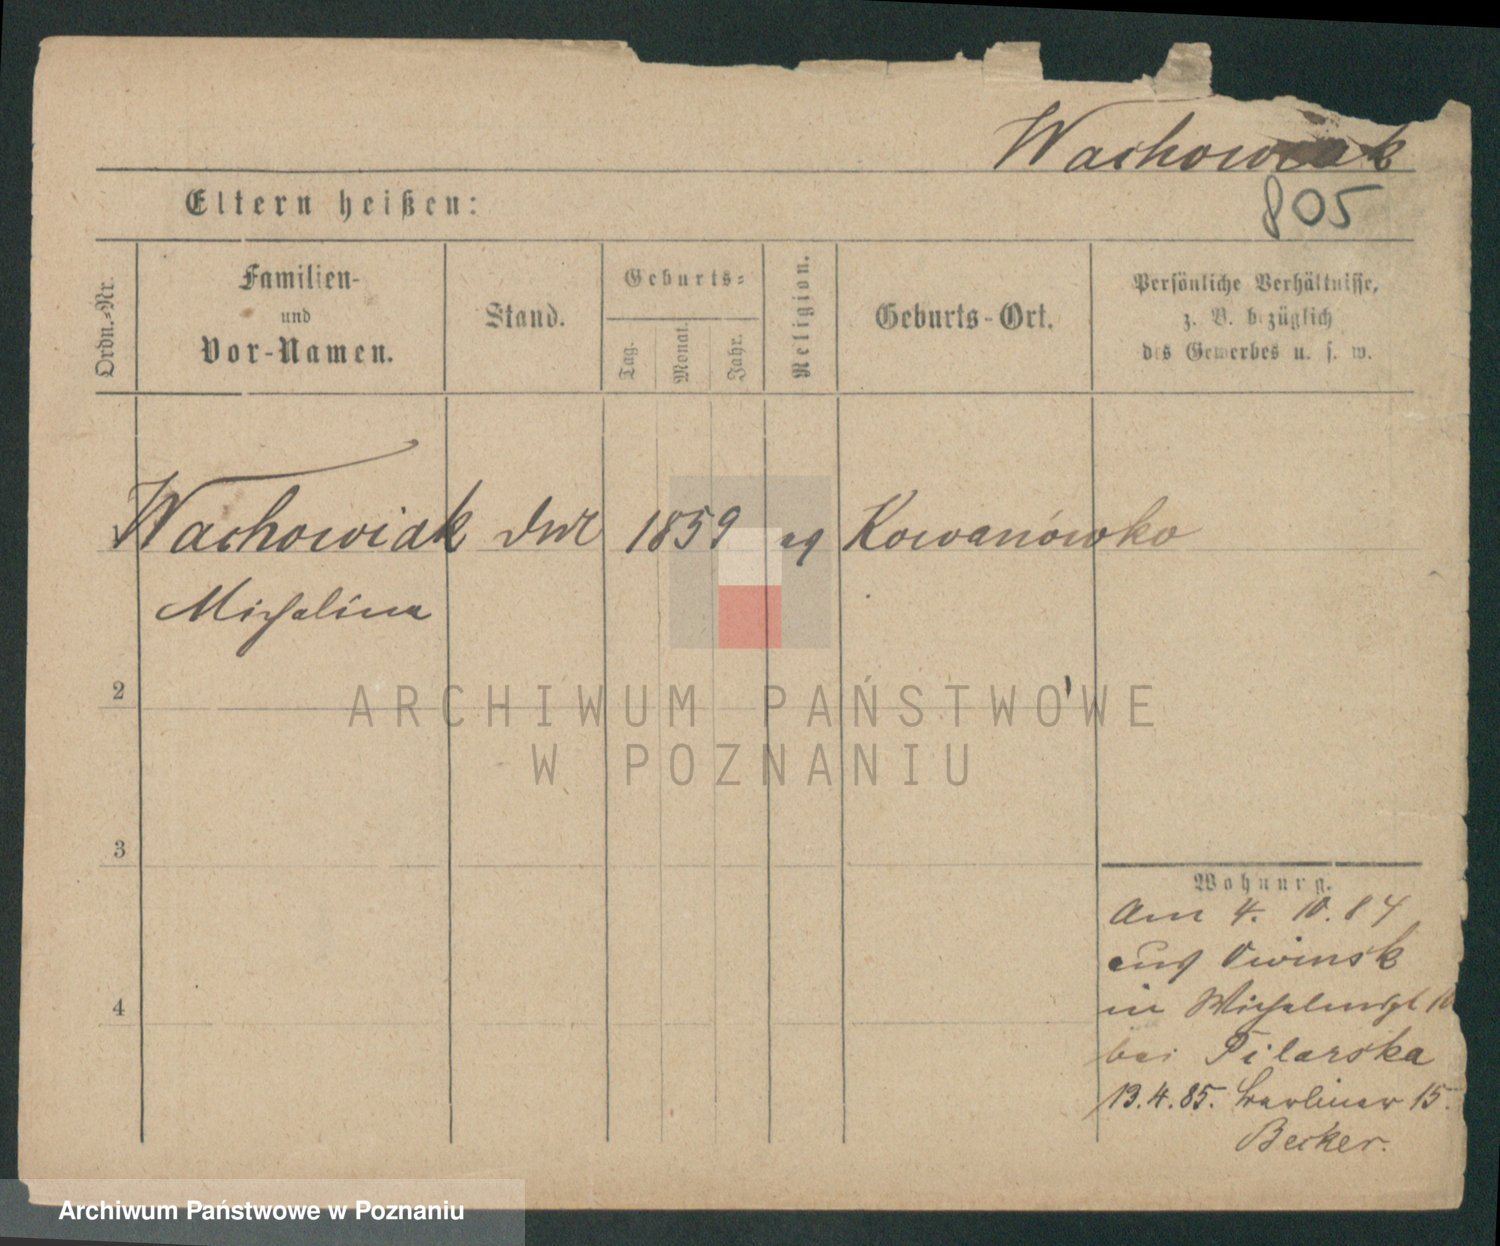 Wachowiak
805
Eltern heißen:
Ordn.-Nr.
Familien-
und
Vor-Namen.
Stand.
Geburts-
Tag.
Monat.
Jahr.
Religion.
Geburts-Ort.
Persönliche Verhältnisse,
z. B. bezüglich
des Gewerbes u. s. w.
Wachowiak 1859 Kowanówko
Michalina
2
ARCHIWUM PAŃSTWOWE
W POZNANIU
3
Wohnung.
Am 4. 10. 84
aus Owinsk
4
in
bei Pilarska
19.4.85. Berliner 15.
Becker.
Archiwum Państwowe w Poznaniu